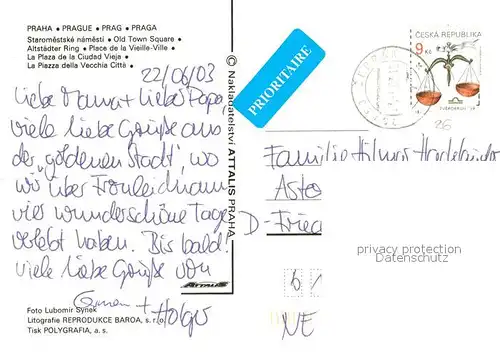 PRAHA • PRAGUE • PRAG • PRAGA
Staroměstské náměstí • Old Town Square •
Altstädter Ring • Place de la Vieille-Ville •
La Plaza de la Ciudad Vieja •
La Piazza della Vecchia Città •
22/06/03
Liebe Mama + Lieber Papa,
viele liebe Grüße aus
der „goldenen Stadt", wo
wir über Fronleichnam
vier wunderschöne Tage
verlebt haben. Bis bald!
viele liebe Grüße von
+
Holger
Foto Lubomír Synek
Litografie REPRODUKCE BAROA, s.r.o.
Tisk POLYGRAFIA, a. s.
© Nakladatelství ATTALIS PRAHA
ATTALIS
PRIORITAIRE
ČESKÁ REPUBLIKA
9 Kč
Familie
D-
privacy protection
Datenschutz